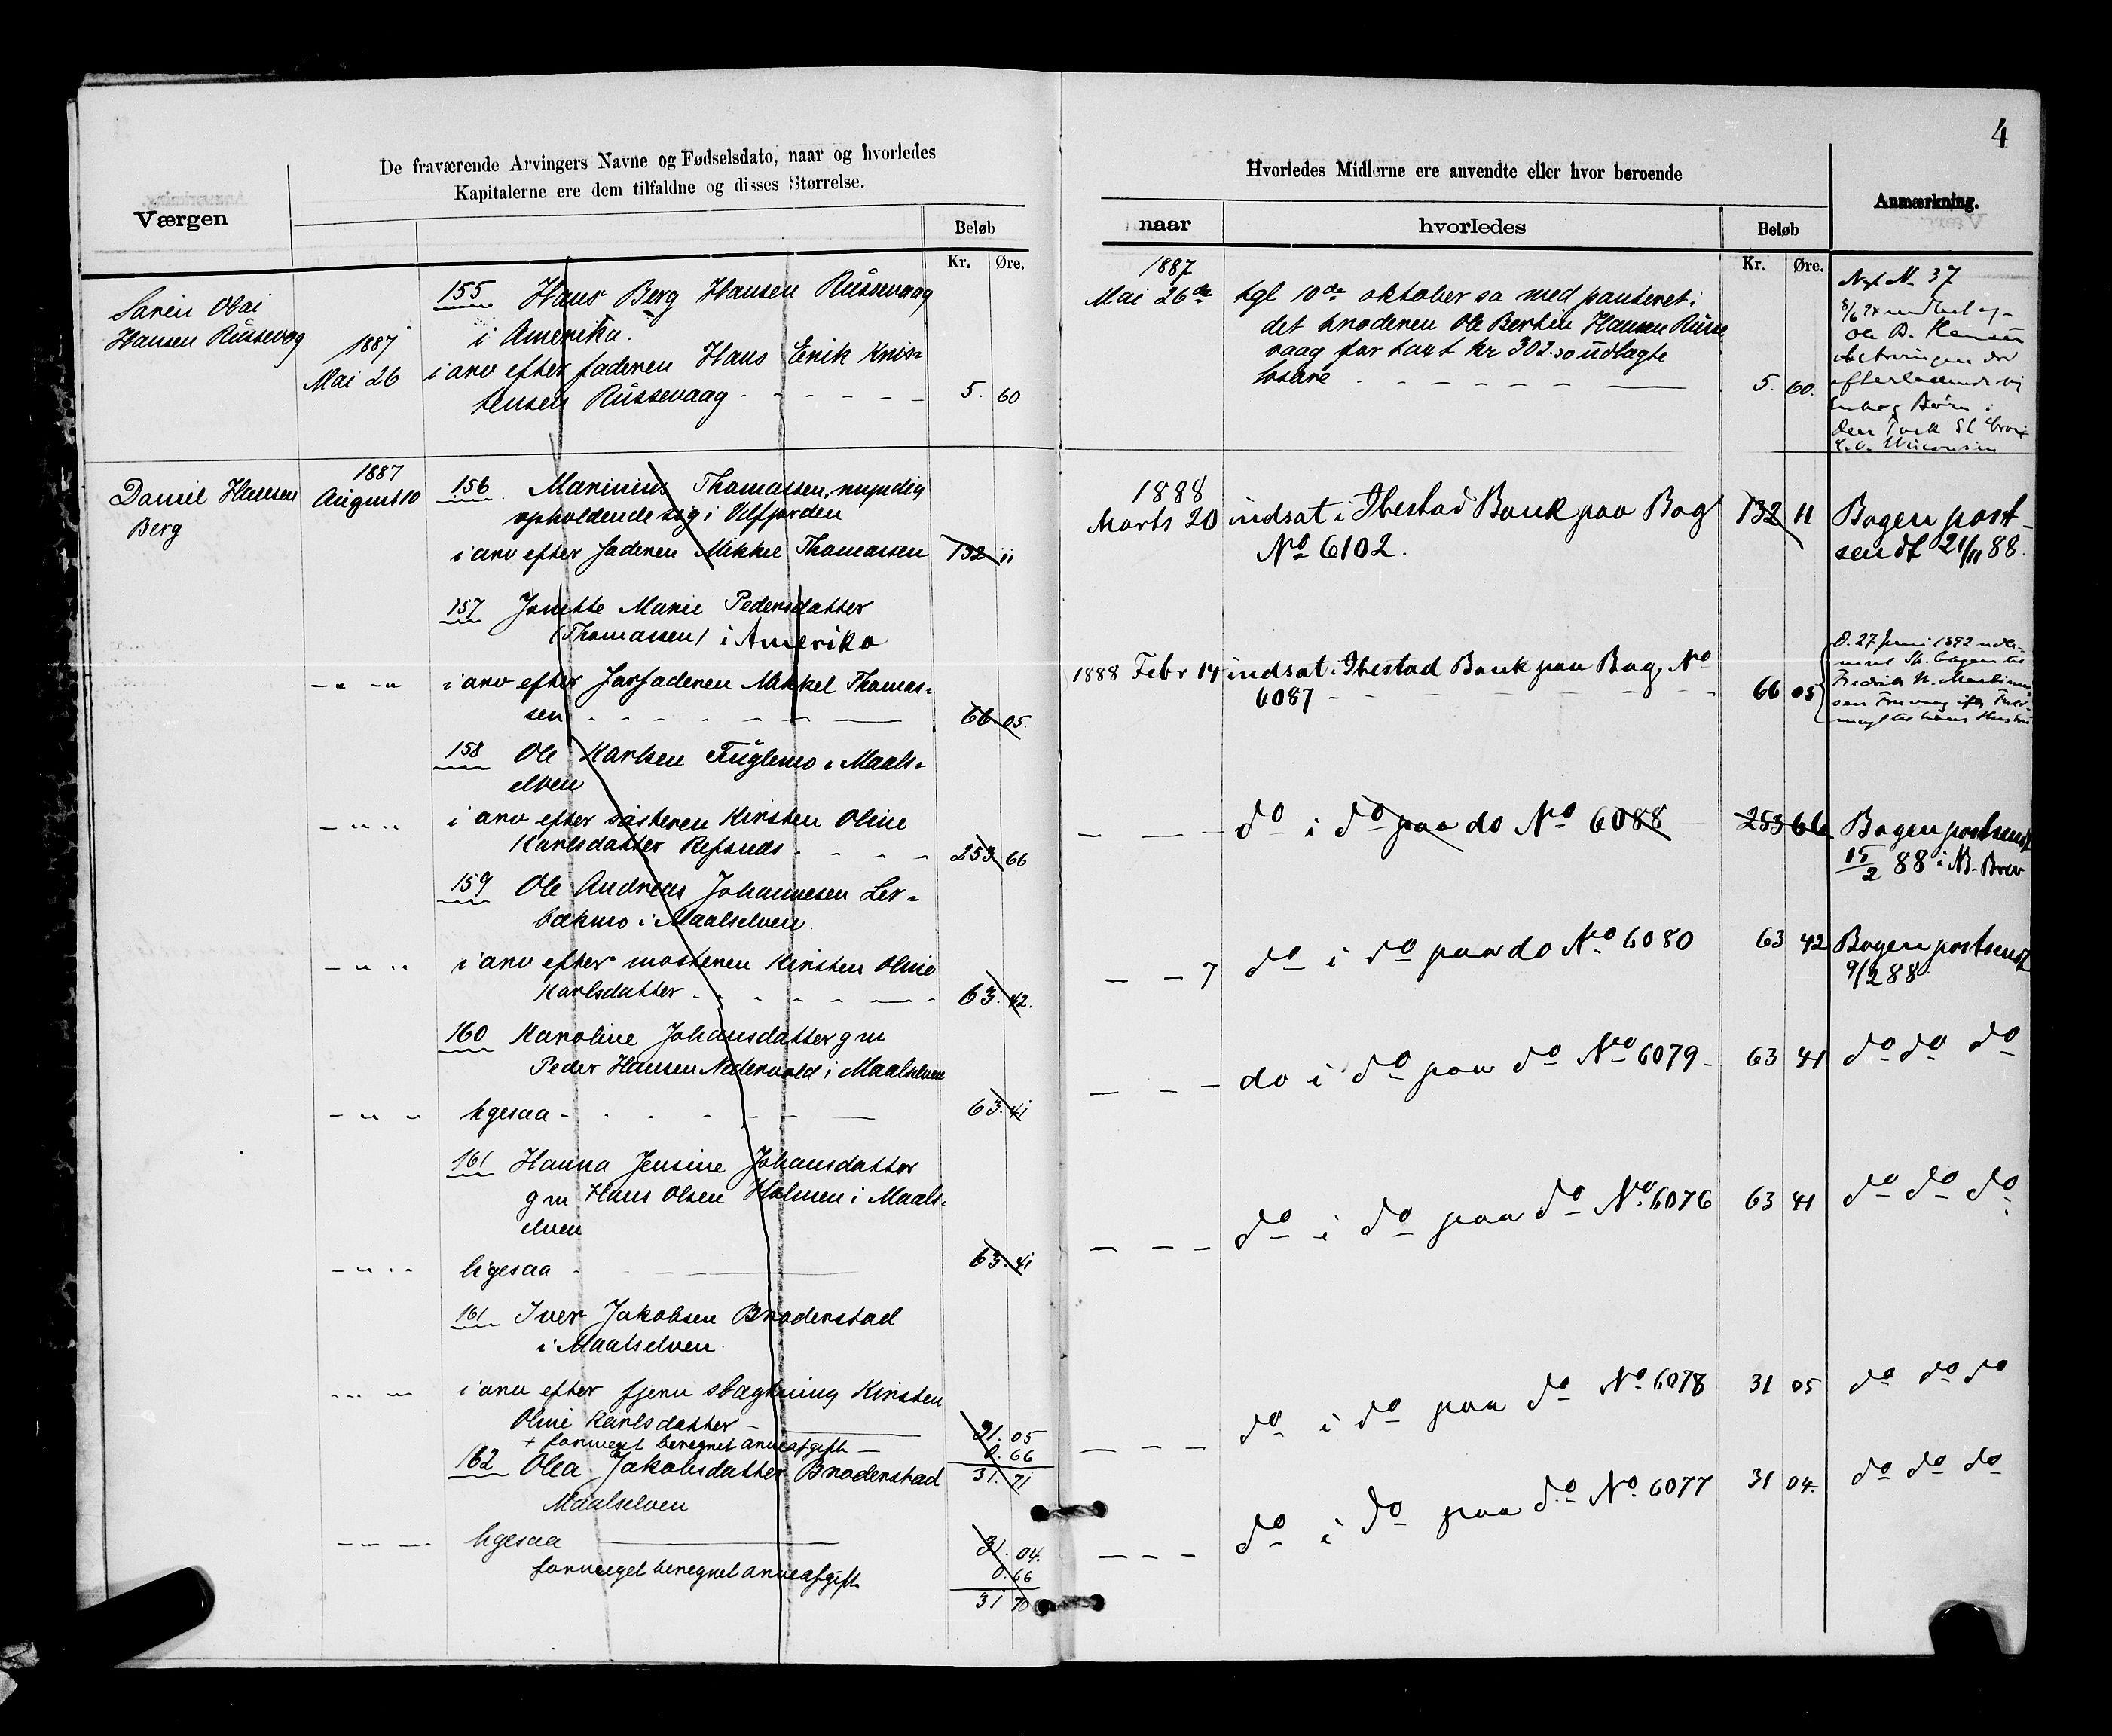 4
De fraværende Arvingers Navne og Fødselsdato, naar og hvorledes
Kapitalerne ere dem tilfaldne og disses Størrelse.
Værgen
Beløb
Kr. Øre.
Hansen Russevog
1887
Mai 26
155 Hans Berg Hansen Russevaag
i Amerika.
i arv efter faderen Hans Erik Kris-
tensen Russevaag - - - - - - 5. 60
Daniel Hansen
Berg
1887
August 10
156 Marinius Thomassen, myndig
opholdende sig i Ulfjorden
i arv efter faderen Mikkel Thomassen 132 11
157 Jonette Marie Pedersdatter
(Thomassen) i Amerika
i arv efter farfaderen Mikkel Thomas-
sen - - - - - 66. 05.
158 Ole Karlsen Fuglemo i Maals-
elven
i arv efter søsteren Kirsten Oline
Karlsdatter Refsnes - - - 253 66
159 Ole Andreas Johannesen Ler-
bækmo i Maalselven.
i arv efter mosteren Kirsten Oline
Karlsdatter - - - - - 63. 42.
160 Karoline Johansdatter gm
Peder Hansen Nedervold i Maalselven
ligesaa - - - - - 63. 41
161 Hanna Jensine Johansdatter
gm Hans Olsen Holmen i Maals-
elven
ligesaa - 63. 41
161 Iver Jakobsen Brodenstad
i Maalselven.
i arv efter fjern slægtning Kirsten
Oline Karlsdatter - 31. 05
+ formeget beregnet arveafgift - 0. 66
31. 71
162 Olea Jakobsdatter Brodenstad
Maalselven
ligesaa 31. 04.
formeget beregnet arveafgift 0. 66
31 70
Hvorledes Midlerne ere anvendte eller hvor beroende
Anmærkning.
naar hvorledes Beløb
Kr. Øre.
1887
Mai 26de
tgl 10de oktober sa med panteret i
det broderen Ole Bertin Hansen Russe
vaag for taxt kr 302.30 udlagte
løsøre - - - - - - 5. 60.
37
Ole B. Hansen
Børn i
Wisconsin
1888
Marts 20 indsat i Ibestad Bank paa Bog 132 11
No 6102.
Bogen post-
sendt 21/11 88.
1888 Febr 14 indsat i Ibestad Bank paa Bog No
6087 - - - - - - 66 05
D. 27 Juni 1892
- - - do i do paa do No 6088 253 66
Bogen postsendt
15/2 88 i NB. Brev
- - 7 do i do paa do No 6080 63 42
Bogen postsendt
9/2 88.
- - - do i do paa do No 6079 - 63 41 do do do
- - - do i do paa do No. 6076 63 41 do do do
- - - do i do paa do No 6078 31 05 do do do
- - - do i do paa do No. 6077 31 04. do do do